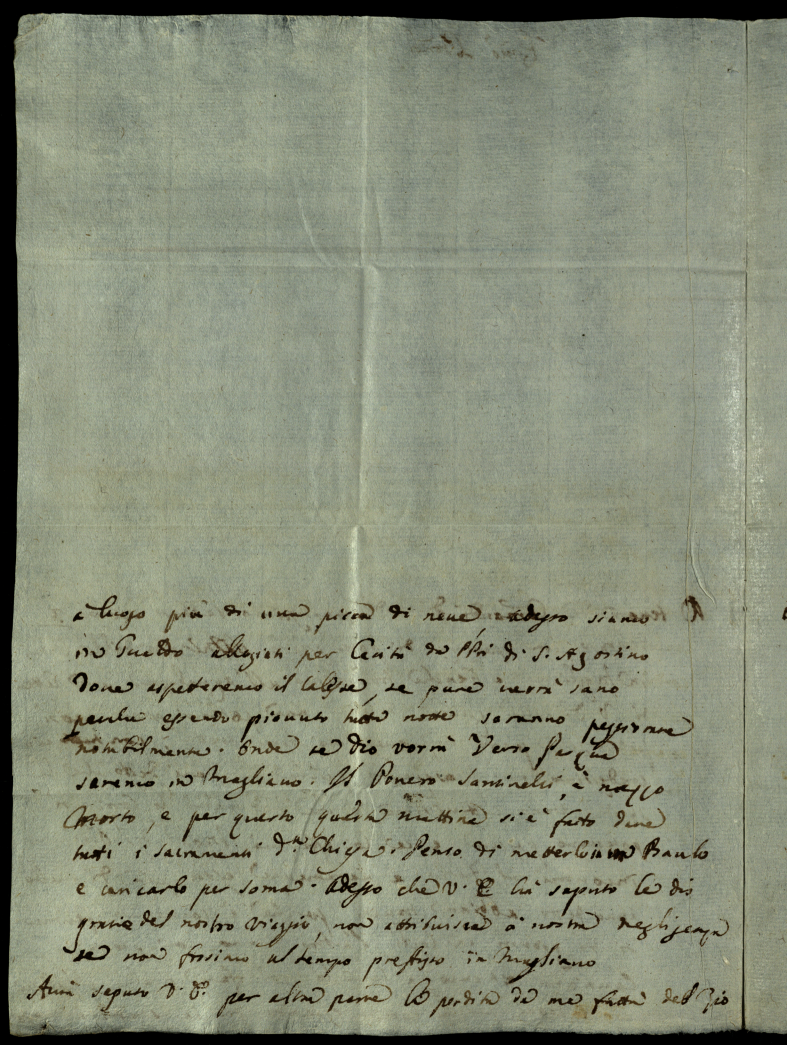 è luogo più di una picca di neve adesso siamo
in Gualdo alloggiati per Carità da PPri di S. Agostino
dove aspetteremo il Calesse, se pure verrà sano
perche essendo piovuto tutta notte saranno
notabilmente. Onde se Dio vorrà Verso Pasqua
saremo in Magliano. Il Povero Santinelli, è mezzo
morto, e per questo questa mattina si è fatto dare
tutti i sacramenti Chiesa. Penso di metterlo in un Baulo
e caricarlo per soma. Adesso che V. hà saputo le dis
gratie del nostro viaggio, non attribuisca à nostra negligenza
se non fossimo al tempo prefisso in Magliano
Avrà saputo V. per altra parte la perdita da me fatta del Zio